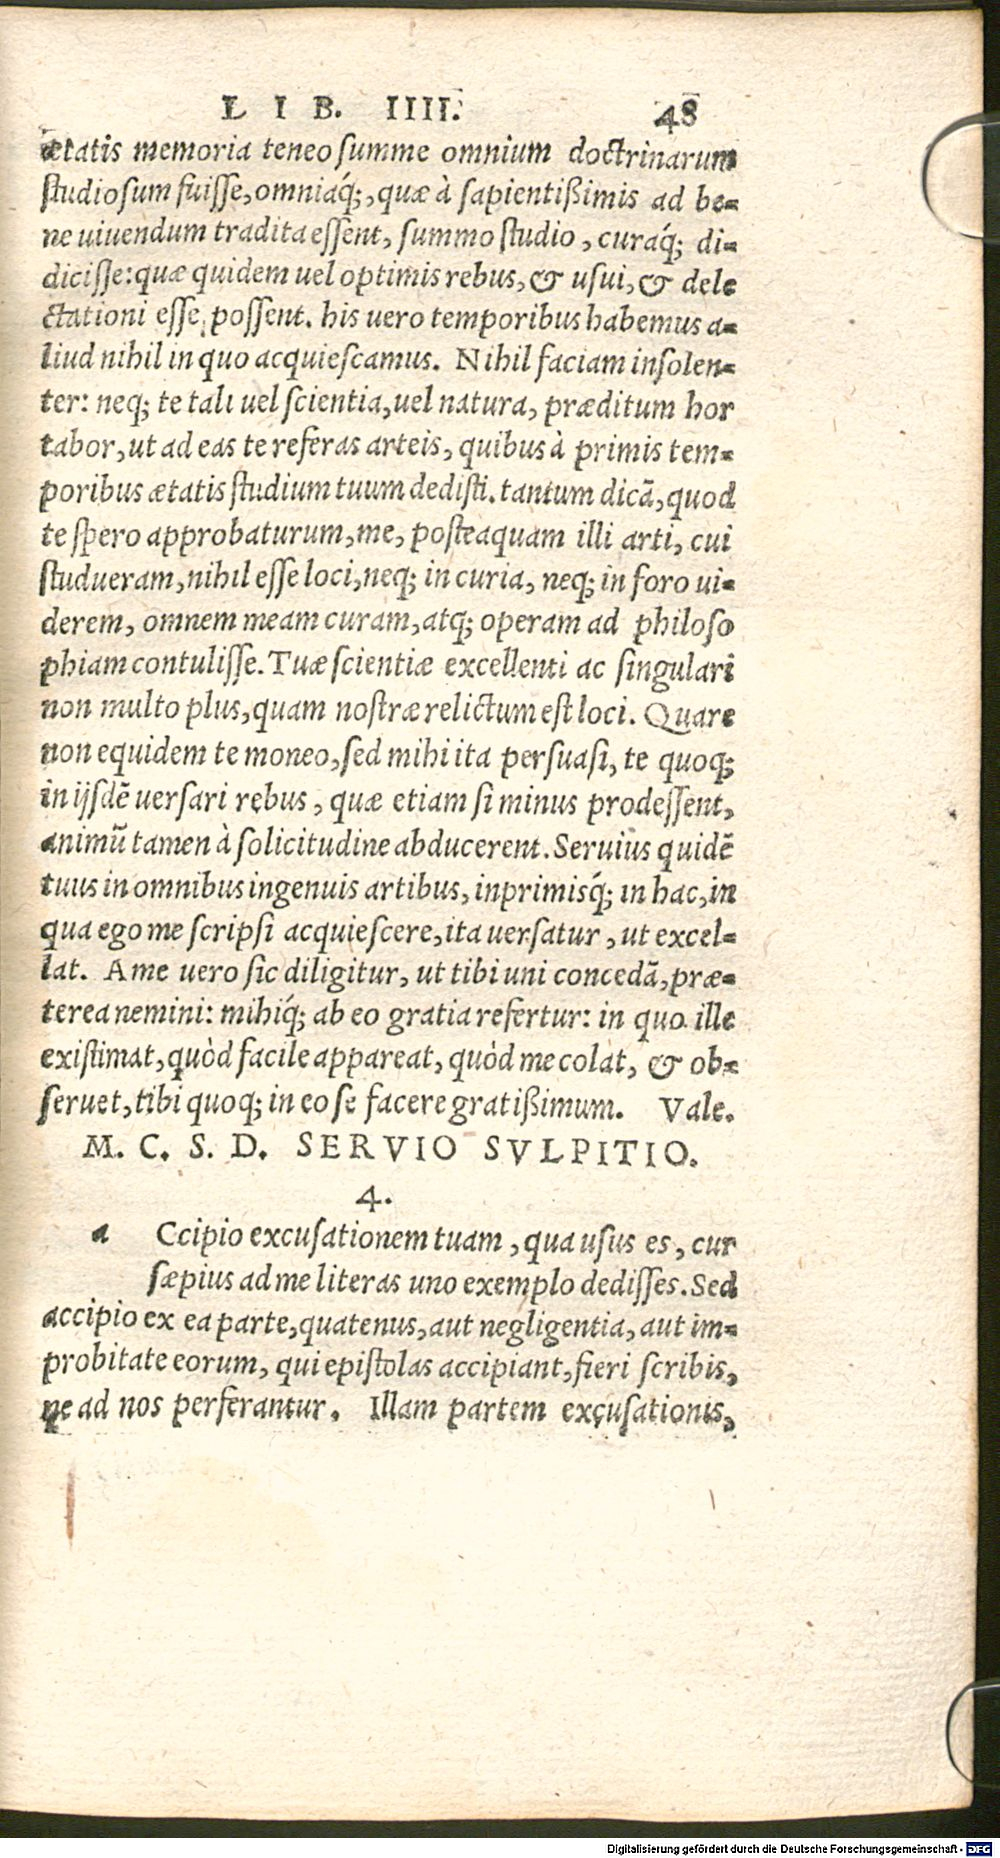 LIB. IIII. 48
ætatis memoria teneo summe omnium doctrinarum
studiosum fuisse, omniaq́;, quæ à sapientißimis ad be=
ne uiuendum tradita essent, summo studio, curaq́; di=
dicisse: quæ quidem uel optimis rebus, & usui, & dele
ctationi esse possent. his uero temporibus habemus a=
liud nihil in quo acquiescamus. Nihil faciam insolen=
ter: neq; te tali uel scientia, uel natura, præditum hor
tabor, ut ad eas te referas arteis, quibus à primis tem=
poribus ætatis studium tuum dedisti. tantum dicā, quod
te spero approbaturum, me, posteaquam illi arti, cui
studueram, nihil esse loci, neq; in curia, neq; in foro ui=
derem, omnem meam curam, atq; operam ad philoso
phiam contulisse. Tuæ scientiæ excellenti ac singulari
non multo plus, quam nostræ relictum est loci. Quare
non equidem te moneo, sed mihi ita persuasi, te quoq;
in ijsdē uersari rebus, quæ etiam si minus prodessent,
animū tamen à solicitudine abducerent. Seruius quidē
tuus in omnibus ingenuis artibus, inprimisq́; in hac, in
qua ego me scripsi acquiescere, ita uersatur, ut excel=
lat. A me uero sic diligitur, ut tibi uni concedā, præ=
terea nemini: mihiq́; ab eo gratia refertur: in quo ille
existimat, quòd facile appareat, quòd me colat, & ob=
seruet, tibi quoq; in eo se facere gratißimum. Vale.
M. C. S. D. SERVIO SVLPITIO.
4.
a Ccipio excusationem tuam, qua usus es, cur
sæpius ad me literas uno exemplo dedisses. Sed
accipio ex ea parte, quatenus, aut negligentia, aut im=
probitate eorum, qui epistolas accipiant, fieri scribis,
ne ad nos perferantur. Illam partem excusationis,
Digitalisierung gefördert durch die Deutsche Forschungsgemeinschaft - DFG